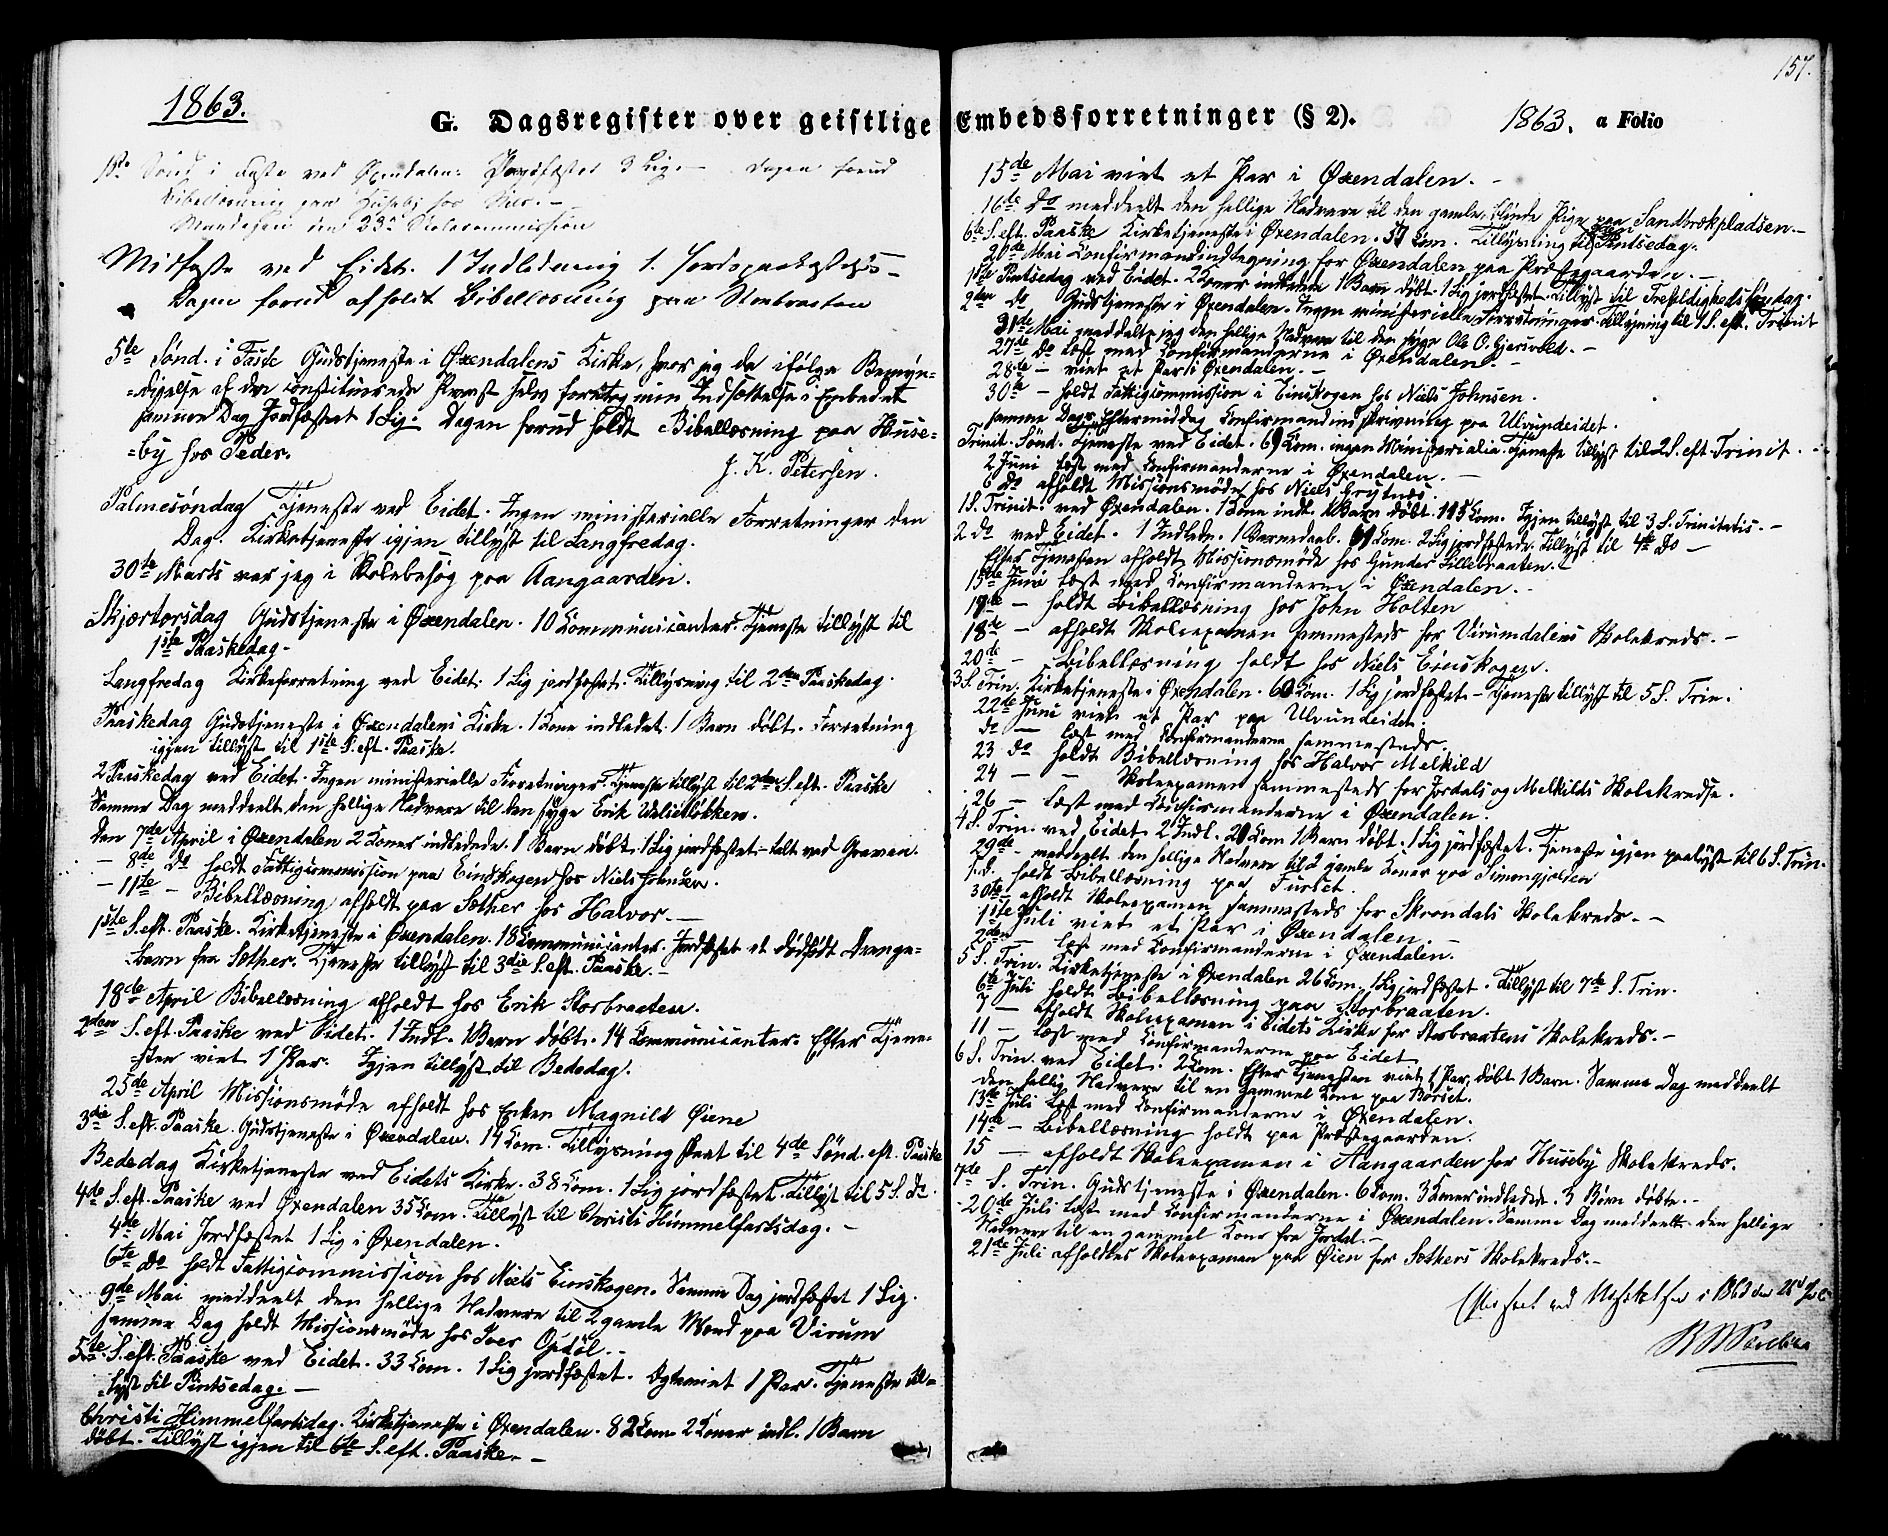 1863.
G. Dagsregister over geistlige
1ste Sönd. i Faste ved Øxendalen. Jordfæstet 3 Lig. – Dagen forud
Bibellæsning paa Huseby hos
Mandagen den 23de Skolecommission
Midfaste ved Eidet. 1 Indledning 1. Jordspaakastelse
Dagen forud afholdt Bibellæsning paa
5te Sönd. i Faste Gudstjeneste i Øxendalens Kirke, hvor jeg da ifölge Bemyn-
=digelse af den constituerede Provst selv foretog min Indsættelse i Embedet
samme Dag Jordfæstet 1 Lig. Dagen forud holdt Bibellæsning paa Huse-
=by hos Peder.
J. K. Petersen.
Palmesöndag Tjeneste ved Eidet. Ingen ministerielle Forretninger den
Dag. Kirketjeneste igjen tillyst til Langfredag.
30te Marts var jeg i Skolebesög paa Aangaarden.
Skjærtorsdag Gudstjeneste i Øxendalen. 10 Communicanter. Tjeneste tillyst til
1ste Paaskedag.
Langfredag Kirkeforretning ved Eidet. 1 Lig jordfæstet. Tillysning til 2den Paaskedag.
Paaskedag Gudstjeneste i Øxendalens Kirke. 1 Kone indledet. 1 Barn döbt. Forretning
igjen tillyst til 1ste S. eft. Paaske.
2 Paaskedag ved Eidet. Ingen ministerielle Forretninger. Tjeneste tillyst til 2den S. eft. Paaske
Samme Dag meddeelt den hellige Nadvere til den syge Erik
Den 7de April i Øxendalen 2 Koner indledede. 1 Barn döbt. 1 Lig jordfæstet – talt ved Graven.
– 8de Do holdt Fattigcommission paa Einskogen hos Niels Johnsen.
– 11te – Bibellæsning afholdt paa Sæther hos Halvor. –
1ste S. eft. Paaske. Kirketjeneste i Øxendalen. 18 Communicanter. Jordfæstet et dödfödt Drenge-
=barn fra Sæther. Tjeneste tillyst til 3die S. eft. Paaske. –
18de April Bibellæsning afholdt hos Erik Storbraaten.
2den S. eft. Paaske ved Eidet. 1 Indl. 1 Barn döbt. 14 Communicanter. Efter Tjene-
=sten viet 1 Par. Igjen tillyst til Bededag.
25de April Missionsmöde afholdt hos Enken Magnild Øiene
3die S. eft. Paaske. Gudstjeneste i Øxendalen. 14 Com. Tillysning skeet til 4de Sönd. eft. Paaske
Bededag Kirketjeneste ved Eidets Kirke. 38 Com. 1 Lig jordfæstet. Tillyst til 5 S. Do.
4de S. eft. Paaske ved Øxendalen 35 Com. Tillyst til Christi Himmelfartsdag. –
4de Mai Jordfæstet 1 Lig i Øxendalen.
6te Do holdt Fattigcommission hos Niels Einskogen. Samme Dag jordfæstet 1 Lig.
9de Mai meddeelt den hellige Nadvere til 2 gamle Mænd paa Virum
samme Dag holdt Missionsmöde hos Iver Opdöl. –
5te S. eft. Paaske ved Eidet. 33 Com. 1 Lig jordfæstet. Ægteviet 1 Par. Tjeneste til-
=lyst til Pintsedag. –
Christi Himmelfartsdag. Kirketjeneste i Øxendalen. 82 Com. 2 Koner indl. 1 Barn
döbt. Tillyst igjen til 6te S. eft. Paaske. –
157.
Embedsforretninger (§ 2).
1863. a Folio
15de Mai viet et Par i Øxendalen. –
16de Do meddeelt den hellige Nadvere til den gamle, blinde Pige paa Sandbrækpladsen. –
6te S. eft. Paaske Kirketjeneste i Øxendalen. 57 Com. Tillysning til Pintsedag.
20de Mai Confirmandindtegning for Øxendalen paa Præstegaarden. –
1ste Pintsedag ved Eidet. 2 Koner indledede 1 Barn döbt. 1 Lig jordfæstet. Tillyst til Trefoldigheds Söndag.
2den do Gudstjeneste i Øxendalen. Ingen ministerielle Forretninger. Tillysning til 1 S. eft. Trinit
21de Mai meddelte jeg den hellige Nadvere til den syge Ole O. Gjersvold. –
27de Do Læst med Confirmanderne i Øxendalen. –
28de – viet et Par i Øxendalen. –
30te – holdt Fattigcommission i Einskogen hos Niels Johnsen.
samme Dags Eftermiddag Confirmandindskrivning paa Ulvundeidet.
Trinit. Sönd. Tjeneste ved Eidet. 69 Com. ingen Ministerialia. Tjeneste tillyst til 2 S. eft. Trinit.
2 Juni læst med Confirmanderne i Øxendalen. –
6 do afholdt Missionsmöde hos Niels Grytnæs.
1 S. Trinit. ved Øxendalen. 1 Kone indl. 1 Barn döbt. 115 Com. Igjen tillyst til 3 S. Trinitatis. –
2 do ved Eidet. 1 Indledn. 1 Barnedaab. 61 Com. 2 Lig jordfæstede. Tillyst til 4de Do –
Efter Tjenesten afholdt Missionsmöde hos Gunder Lillebraaten.
15de Juni læst med Confirmanderne i Øxendalen. –
17de – holdt Bibellæsning hos John Holten
18de – afholdt Skoleexamen sammesteds for Virumdalens Skolekreds. –
20de – Bibellæsning holdt hos Niels Einskogen.
3 S. Trin. Kirketjeneste i Øxendalen. 60 Com. 1 Lig jordfæstet – Tjeneste tillyst til 5 S. Trin.
22de Juni viet et Par paa Ulvundeidet.
do – læst med Confirmanderne sammesteds
23 do holdt Bibellæsning hos Halvor Melkild
24 – – Skoleexamen sammesteds for Jordals og Melkilds Skolekredse.
26 – læst med Confirmanderne i Øxendalen.
4 S. Trin. ved Eidet 2 Indl. 20 Com 1 Barn döbt. 1 Lig jordfæstet. Tjeneste igjen paalyst til 6 S. Trin.
29de – meddeelt den hellige Nadvere til 2 gamle Koner paa
s. d. holdt Bibellæsning paa Furset.
30te afholdt Skoleexamen sammesteds for Skrondals Skolekreds. –
1ste Juli viet et Par i Øxendalen. –
2den – læst med Confirmanderne i Øxendalen.
5 S. Trin. Kirketjeneste i Øxendalen 26 Com. 1 Lig jordfæstet. Tillyst til 7de S. Trin.
6te Juli holdt Bibellæsning paa Storbraaten.
7 – afholdt Skoleexamen i Eidets Kirke for Storbraatens Skolekreds. –
11 – læst med Confirmanderne paa Eidet
6 S. Trin. ved Eidet. 2 Com. Efter Tjenesten viet 1 Par, döbt 1 Barn. Samme Dag meddeelt
den hellig Nadvere til en gammel Kone paa Börset.
13de Juli læst med Confirmanderne i Øxendalen.
14de – Bibellæsning holdt paa Præstegaarden.
15 – afholdt Skoleexamen i Aangaarden for Huseby Skolekreds.
7de S. Trin. Gudstjeneste i Øxendalen. 6 Com. 3 Koner indledede. 3 Börn döbte. –
20de Juli læst med Confirmanderne i Øxendalen. Samme Dag meddeelt den hellige
Nadvere til en gammel Kone fra Jordal. –
21de Juli afholdtes Skoleexamen paa Øien for Sæthers Skolekreds. –
Efterseet ved Visitatsen i 1863 den